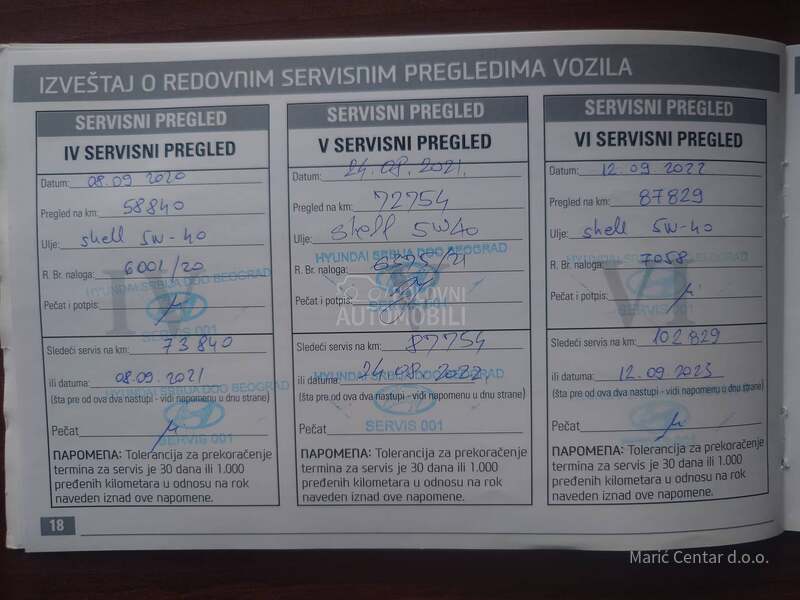 IZVEŠTAJ O REDOVNIM SERVISNIM PREGLEDIMA VOZILA
SERVISNI PREGLED
IV SERVISNI PREGLED
Datum: 08.09 2020
Pregled na km: 58840
Ulje: shell 5W-40
R. Br. naloga: 6001/20
HYUNDAI SRBIJA DOO BEOGRAD
Pečat i potpis:
IV
SERVIS 001
Sledeći servis na km: 73840
ili datuma: 08.09.2021
HYUNDAI SRBIJA DOO BEOGRAD
(šta pre od ova dva nastupi - vidi napomenu u dnu strane)
Pečat
SERVIS 001
NAPOMENA: Tolerancija za prekoračenje
termina za servis je 30 dana ili 1.000
pređenih kilometara u odnosu na rok
naveden iznad ove napomene.
SERVISNI PREGLED
V SERVISNI PREGLED
Datum: 24.08.2021.
Pregled na km: 72754
Ulje: shell 5W40
HYUNDAI SRBIJA DOO BEOGRAD
R. Br. naloga: /21
Pečat i potpis:
POLOVNI
AUTOMOBILI
Sledeći servis na km: 87754
HYUNDAI SRBIJA DOO BEOGRAD
ili datuma: 24.08.2022.
(šta pre od ova dva nastupi - vidi napomenu u dnu strane)
Pečat
SERVIS 001
NAPOMENA: Tolerancija za prekoračenje
termina za servis je 30 dana ili 1.000
pređenih kilometara u odnosu na rok
naveden iznad ove napomene.
SERVISNI PREGLED
VI SERVISNI PREGLED
Datum: 12.09 2022
Pregled na km: 87829
Ulje: shell 5W-40
R. Br. naloga: 7058
Pečat i potpis:
VI
Sledeći servis na km: 102829
ili datuma: 12.09.2023
(šta pre od ova dva nastupi - vidi napomenu u dnu strane)
Pečat
NAPOMENA: Tolerancija za prekoračenje
termina za servis je 30 dana ili 1.000
pređenih kilometara u odnosu na rok
naveden iznad ove napomene.
18
Marić Centar d.o.o.